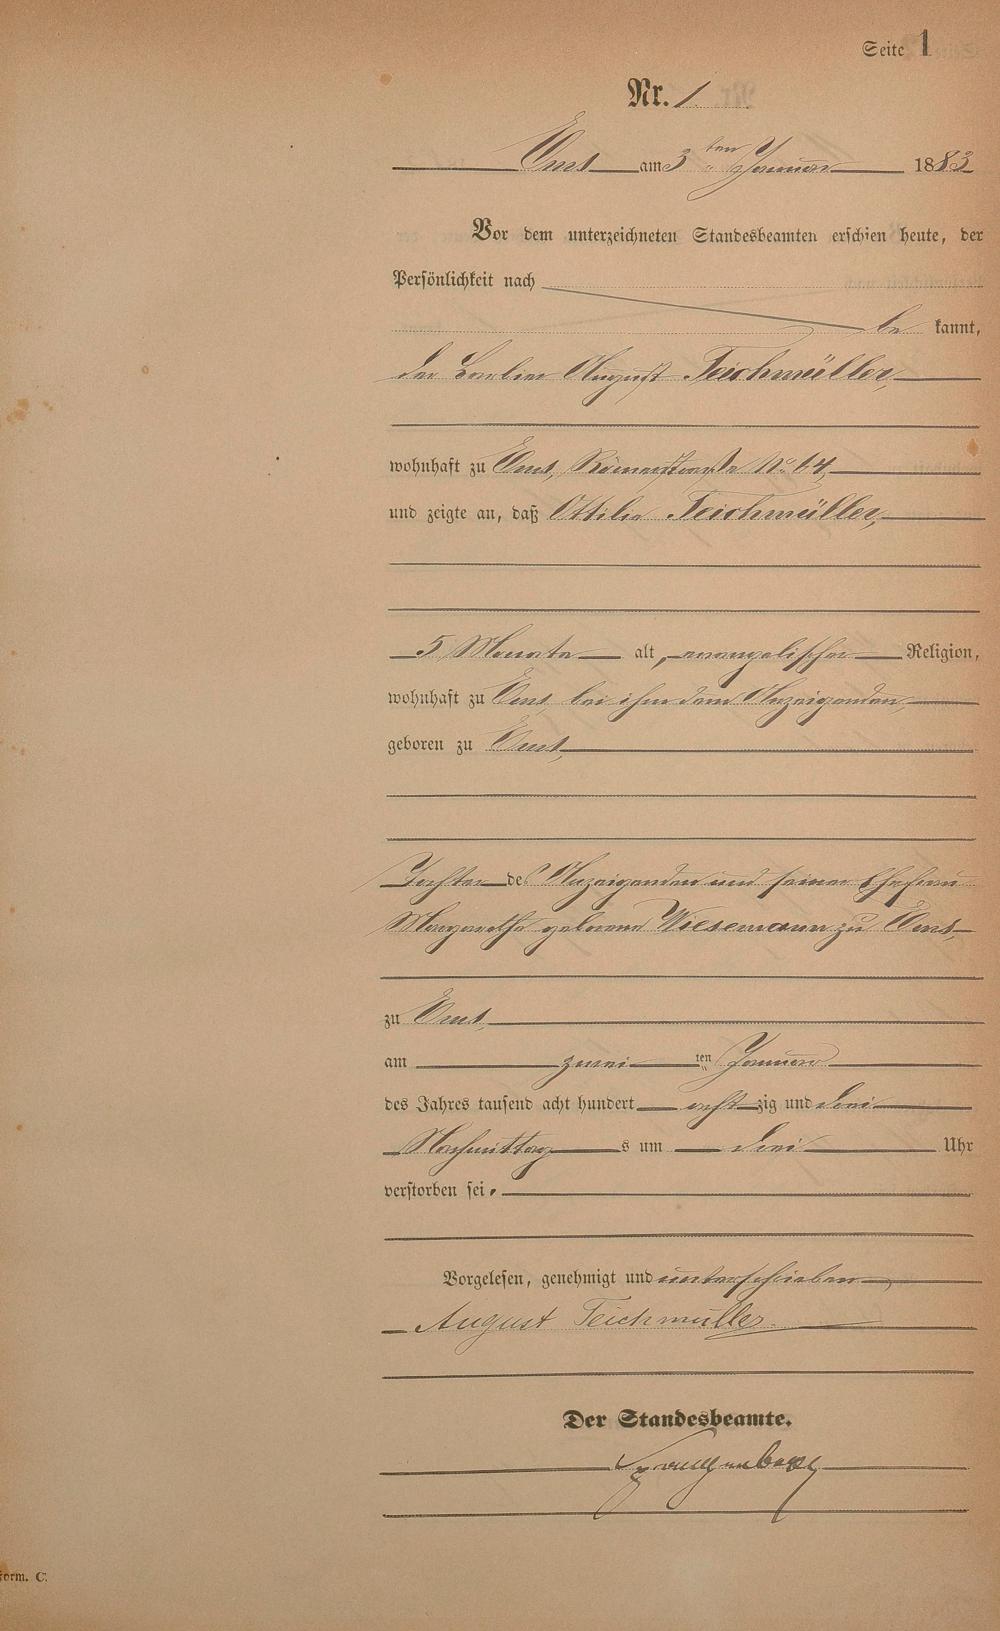 Seite 1
Nr. 1.
Ems am 3ten Januar 1883
Vor dem unterzeichneten Standesbeamten erschien heute, der
Persönlichkeit nach
be kannt,
der Barbier August Teichmüller,
wohnhaft zu Ems, Römerstraße No 64,
und zeigte an, daß Ottilie Teichmüller,
5 Monate alt, evangelischer Religion,
wohnhaft zu Ems, bei ihm dem Anzeigenden,
geboren zu Ems,
Tochter des Anzeigenden und seiner Ehefrau
Margarethe geborene Wiesemann zu Ems,
zu Ems,
am zwei ten Januar
des Jahres tausend acht hundert acht zig und drei
Nachmittag s um drei Uhr
verstorben sei.
Vorgelesen, genehmigt und unterschrieben
August Teichmüller.
Der Standesbeamte.
form. C.